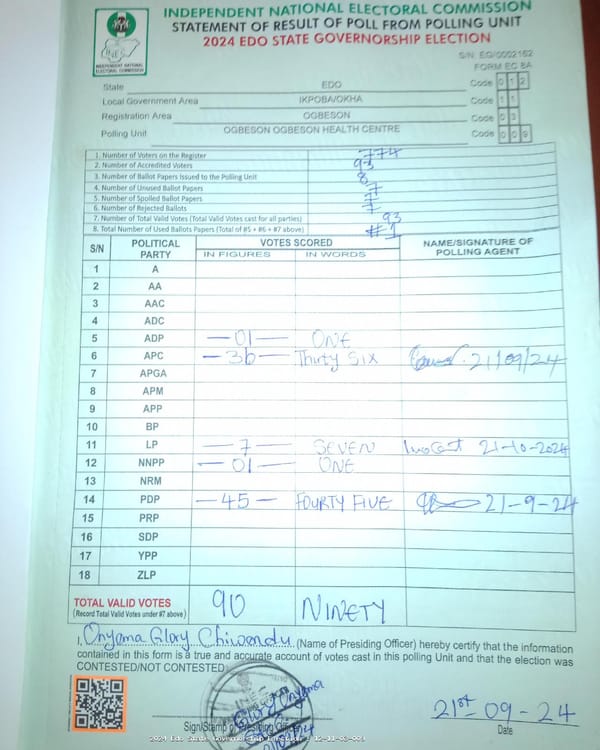 INDEPENDENT NATIONAL ELECTORAL COMMISSION
STATEMENT OF RESULT OF POLL FROM POLLING UNIT
2024 EDO STATE GOVERNORSHIP ELECTION
INEC
INDEPENDENT NATIONAL ELECTORAL COMMISSION
S/N: EG/0002152
FORM EC 8A
State EDO Code 0 1 2
Local Government Area IKPOBA/OKHA Code 1 1
Registration Area OGBESON Code 0 3
Polling Unit OGBESON OGBESON HEALTH CENTRE Code 0 0 9
1. Number of Voters on the Register 774
2. Number of Accredited Voters 93
3. Number of Ballot Papers Issued to the Polling Unit
4. Number of Unused Ballot Papers
5. Number of Spoiled Ballot Papers
6. Number of Rejected Ballots
7. Number of Total Valid Votes (Total Valid Votes cast for all parties) 93
8. Total Number of Used Ballots Papers (Total of #5 + #6 + #7 above)
S/N POLITICAL PARTY VOTES SCORED NAME/SIGNATURE OF POLLING AGENT
IN FIGURES IN WORDS
1 A
2 AA
3 AAC
4 ADC
5 ADP —01— ONE
6 APC —36— Thirty Six 21/09/24
7 APGA
8 APM
9 APP
10 BP
11 LP —7— SEVEN 21-10-2024
12 NNPP —01— ONE
13 NRM
14 PDP —45— FOURTY FIVE 21-9-24
15 PRP
16 SDP
17 YPP
18 ZLP
TOTAL VALID VOTES 90 NINETY
(Record Total Valid Votes under #7 above)
I, Onyama Glory Chiwendu (Name of Presiding Officer) hereby certify that the information
contained in this form is a true and accurate account of votes cast in this polling Unit and that the election was
CONTESTED/NOT CONTESTED.
Glory Onyama
21st-09-24
Sign/Stamp of Presiding Officer
Date